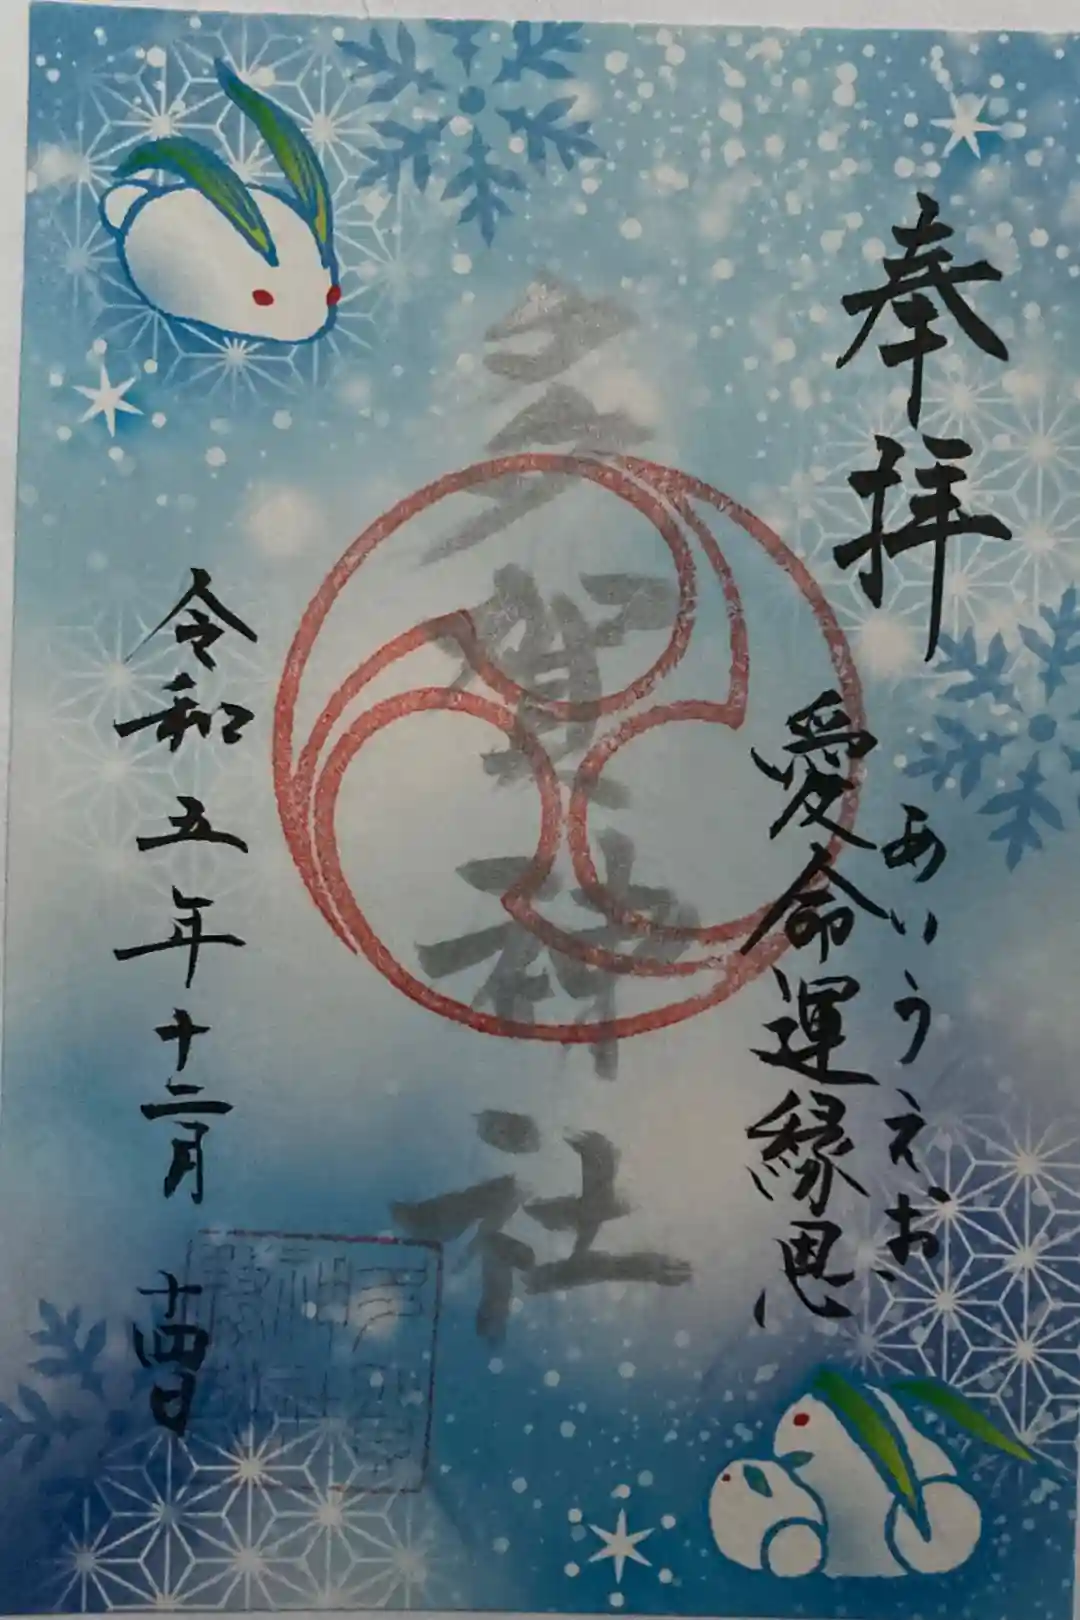 奉拝
あいうえお
愛命運縁恩
多賀神社
令和五年十二月十四日